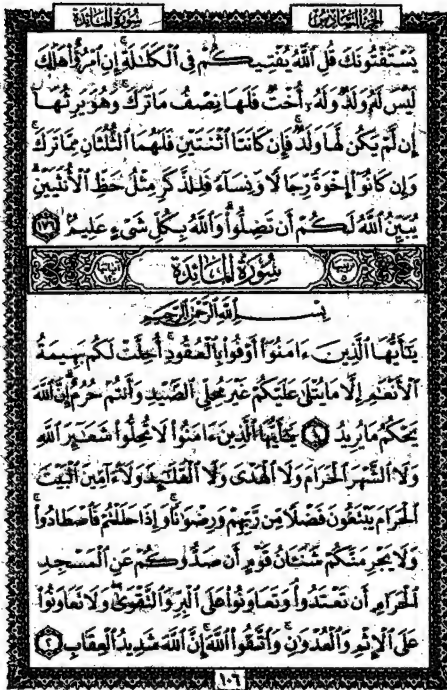 سُورَةُ المَائـِدَة الجُزْءُ السَّادِسُ
يَسْتَفْتُونَكَ قُلِ ٱللَّهُ يُفْتِيكُمْ فِى ٱلْكَلَـٰلَةِ إِنِ ٱمْرُؤٌا۟ هَلَكَ
لَيْسَ لَهُۥ وَلَدٌ وَلَهُۥٓ أُخْتٌ فَلَهَا نِصْفُ مَا تَرَكَ وَهُوَ يَرِثُهَآ
إِن لَّمْ يَكُن لَّهَا وَلَدٌ فَإِن كَانَتَا ٱثْنَتَيْنِ فَلَهُمَا ٱلثُّلُثَانِ مِمَّا تَرَكَ
وَإِن كَانُوٓا۟ إِخْوَةً رِّجَالًا وَنِسَآءً فَلِلذَّكَرِ مِثْلُ حَظِّ ٱلْأُنثَيَيْنِ
يُبَيِّنُ ٱللَّهُ لَكُمْ أَن تَضِلُّوا۟ وَٱللَّهُ بِكُلِّ شَىْءٍ عَلِيمٌ ١٧٦
سُورَةُ المَائـِدَة
بِسْمِ ٱللَّهِ ٱلرَّحْمَـٰنِ ٱلرَّحِيمِ
يَـٰٓأَيُّهَا ٱلَّذِينَ ءَامَنُوٓا۟ أَوْفُوا۟ بِٱلْعُقُودِ أُحِلَّتْ لَكُم بَهِيمَةُ
ٱلْأَنْعَـٰمِ إِلَّا مَا يُتْلَىٰ عَلَيْكُمْ غَيْرَ مُحِلِّى ٱلصَّيْدِ وَأَنتُمْ حُرُمٌ إِنَّ ٱللَّهَ
يَحْكُمُ مَا يُرِيدُ ١ يَـٰٓأَيُّهَا ٱلَّذِينَ ءَامَنُوا۟ لَا تُحِلُّوا۟ شَعَـٰٓئِرَ ٱللَّهِ
وَلَا ٱلشَّهْرَ ٱلْحَرَامَ وَلَا ٱلْهَدْىَ وَلَا ٱلْقَلَـٰٓئِدَ وَلَآ ءَآمِّينَ ٱلْبَيْتَ
ٱلْحَرَامَ يَبْتَغُونَ فَضْلًا مِّن رَّبِّهِمْ وَرِضْوَٰنًا وَإِذَا حَلَلْتُمْ فَٱصْطَادُوا۟
وَلَا يَجْرِمَنَّكُمْ شَنَـَٔانُ قَوْمٍ أَن صَدُّوكُمْ عَنِ ٱلْمَسْجِدِ
ٱلْحَرَامِ أَن تَعْتَدُوا۟ وَتَعَاوَنُوا۟ عَلَى ٱلْبِرِّ وَٱلتَّقْوَىٰ وَلَا تَعَاوَنُوا۟
عَلَى ٱلْإِثْمِ وَٱلْعُدْوَٰنِ وَٱتَّقُوا۟ ٱللَّهَ إِنَّ ٱللَّهَ شَدِيدُ ٱلْعِقَابِ ٢
١٠٦